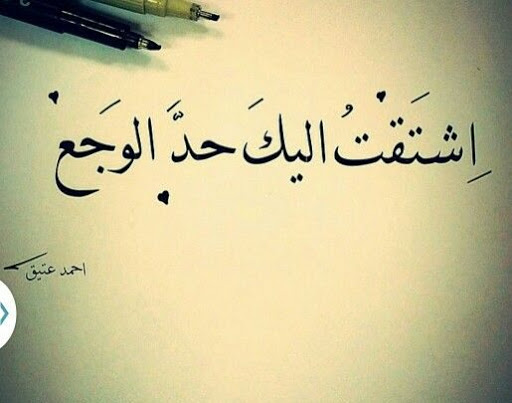 اِشتَقتُ اليكَ حدَّ الوجَع
احمد عتيق